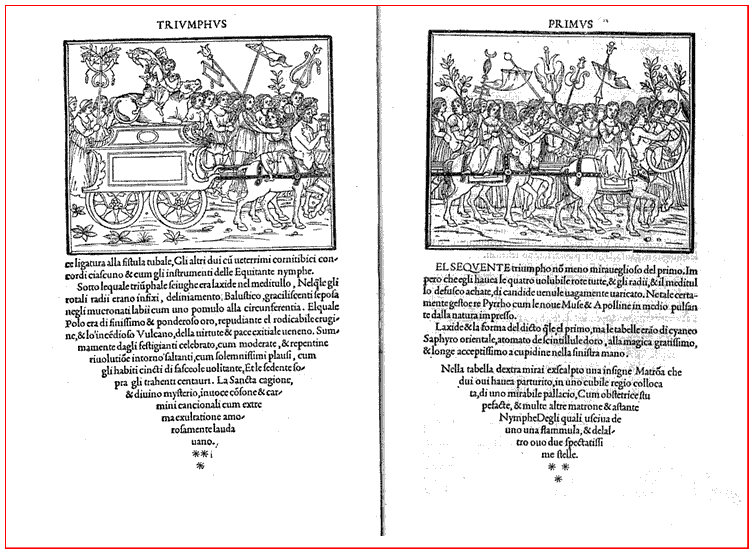 TRIVMPHVS
ce ligatura alla fistula tubale, Gli altri dui cū ueterrimi cornitibici con-
cordi ciascuno & cum gli instrumenti delle Equitante nymphe.
Sotto lequale triūphale seiughe era laxide nel meditullo, Nelq̄le gli
rotali radii erano infixi, deliniamento. Balustico, graciliscenti seposa
negli mucronati labii cum uno pomulo alla circunferentia. Elquale
Polo era di finissimo & ponderoso oro, repudiante el rodicabile erugi-
ne, & lo'incēdioso Vulcano, della uirtute & pace exitiale ueneno. Sum-
mamente dagli festigianti celebrato, cum moderate, & repentine
riuolutiōe intorno saltanti, cum solemnissimi plausi, cum
gli habiti cincti di fasceole uolitante, Et le sedente so-
pra gli trahenti centauri. La Sancta cagione,
& diuino mysterio, inuoce cōsone & car-
mini cancionali cum extre
ma exultatione amo-
rosamente lauda
uano.
PRIMVS
EL SEQVENTE triumpho nō meno miraueglioso del primo. Im
pero che egli hauea le quatro uolubile rote tutte, & gli radii, & il meditul
lo defusco achate, di candide uenule uagamente uaricato. Netale certa-
mente gestoe re Pyrrho cum le noue Muse & Apolline in medio pulsan
te dalla natura impresso.
Laxide & la forma del dicto q̄le el primo, ma le tabelle erāo di cyaneo
Saphyro orientale, atomato de scintillule doro, alla magica gratissimo,
& longe acceptissimo a cupidine nella sinistra mano.
Nella tabella dextra mirai exscalpto una insigne Matrōa che
dui oui hauea parturito, in uno cubile regio colloca
ta, di uno mirabile pallacio, Cum obstetrice stu
pefacte, & multe altre matrone & astante
Nymphe Degli quali usciua de
uno una flammula, & delal-
tro ouo due spectatissi
me stelle.